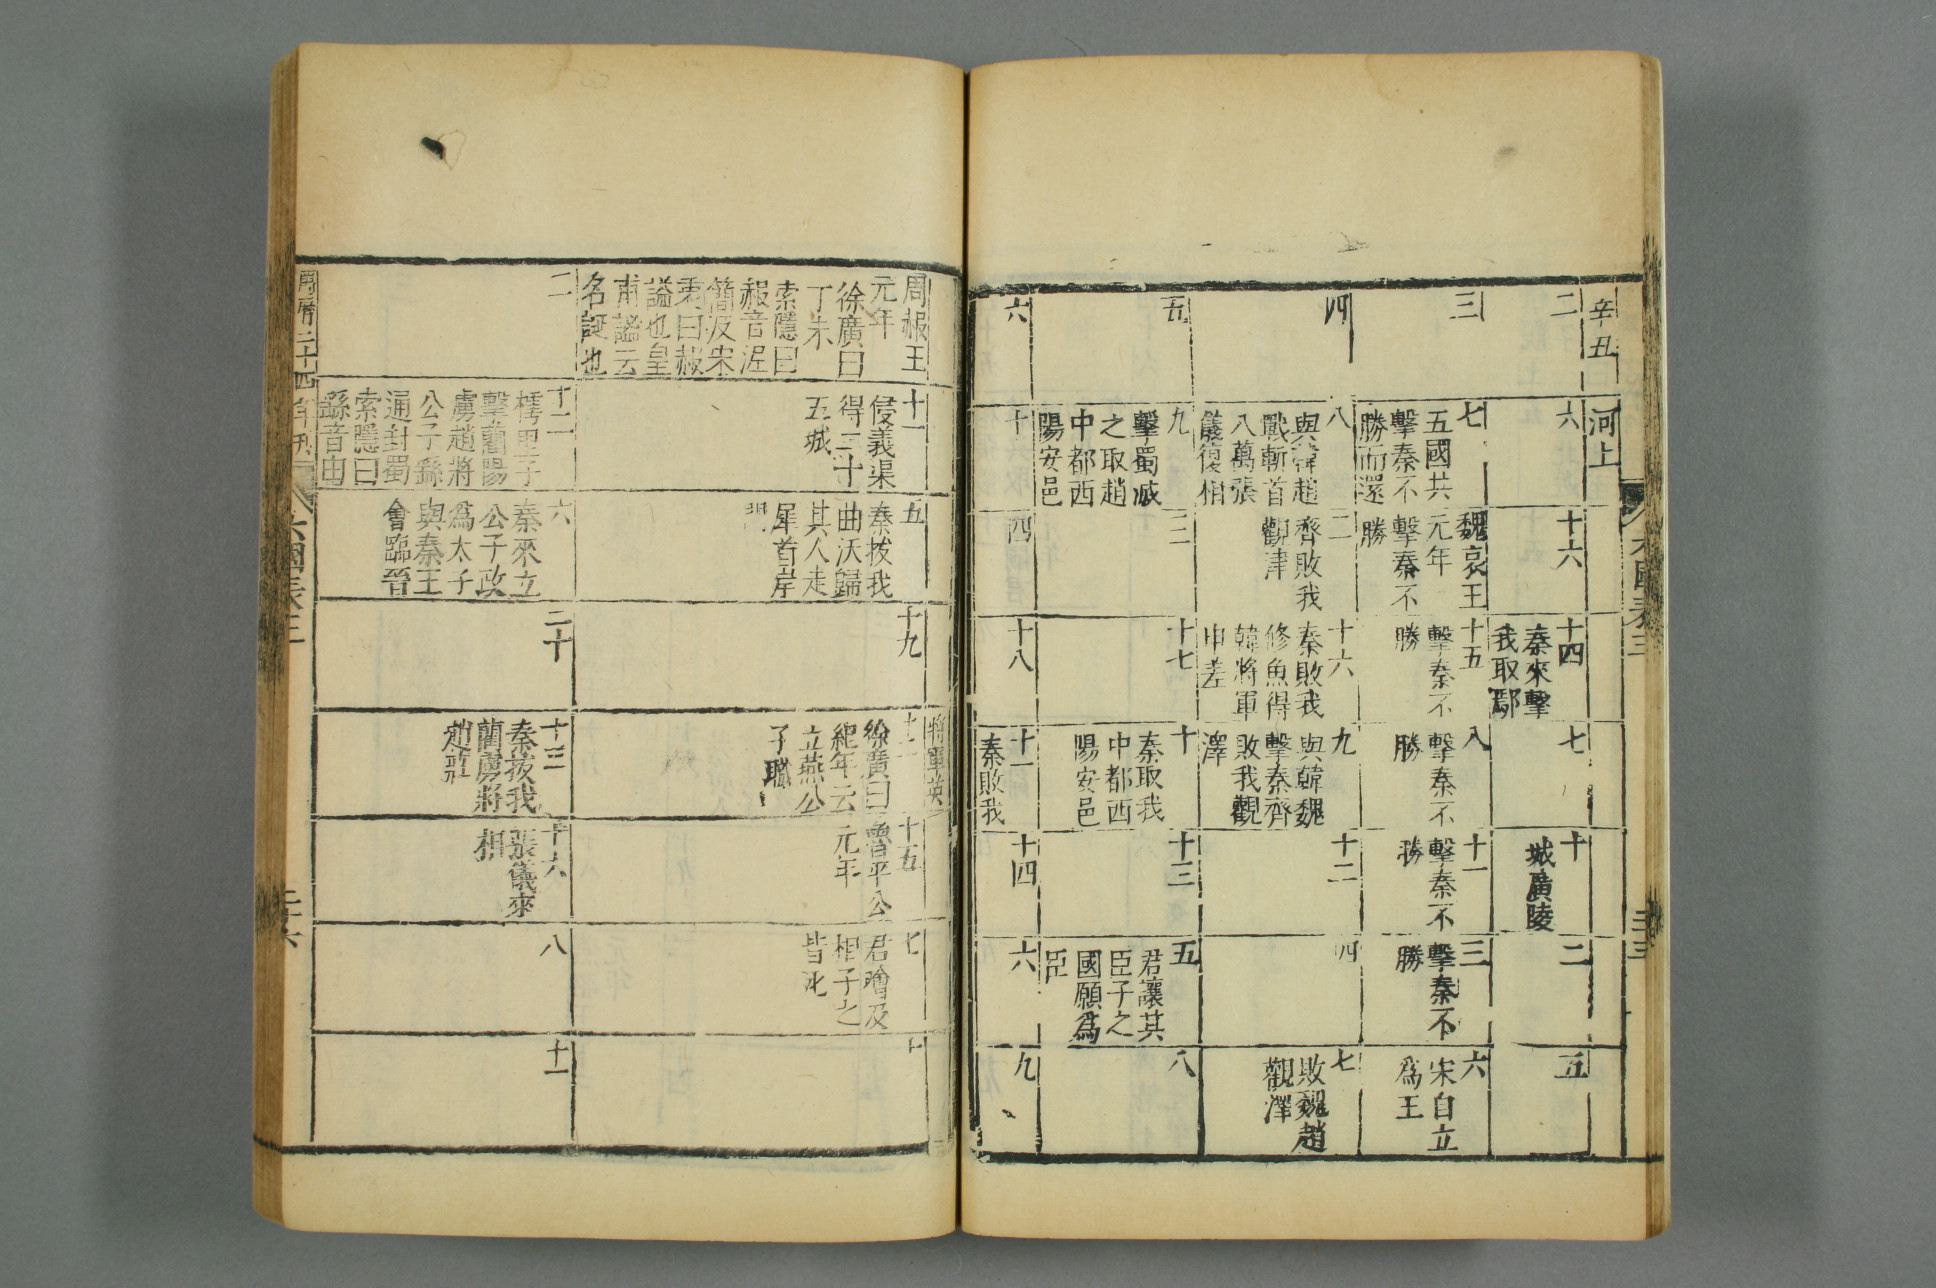 辛丑
河上
二
六
十六
十四
秦來擊
我取鄢
七
十
城廣陵
二
五
三
七
五國共
擊秦不
勝而還
魏哀王
元年
擊秦不
勝
十五
擊秦不
勝
八
擊秦不
勝
十一
擊秦不
勝
三
擊秦不
勝
六
宋自立
爲王
四
八
與韓趙
戰斬首
八萬張
儀復相
二
齊敗我
觀津
十六
秦敗我
修魚得
韓將軍
申差
九
與韓魏
擊秦齊
敗我觀
澤
十二
四
七
敗魏趙
觀澤
五
九
擊蜀滅
之取趙
中都西
陽安邑
三
十七
十
秦取我
中都西
陽安邑
十三
五
君讓其
臣子之
國願爲
臣
八
六
十
四
十八
十一
秦敗我
十四
六
九
將軍英
周赧王
元年
徐廣曰
丁未
索隱曰
赧音
簡反宋
衷曰赧
謚也皇
甫謐云
名誕也
十一
侵義渠
得二十
五城
五
秦拔我
曲沃歸
其人走
犀首岸
門
十九
徐廣曰
紀年云
立燕公
子職
十五
魯平公
元年
七
君噲及
相子之
皆死
十
二
十二
樗里子
擊藺陽
虜趙將
公子繇
通封蜀
索隱曰
繇音由
六
秦來立
公子政
爲太子
與秦王
會臨晉
二十
十三
秦拔我
藺虜將
趙莊
十六
張儀來
相
八
十一
六國表三
二十六